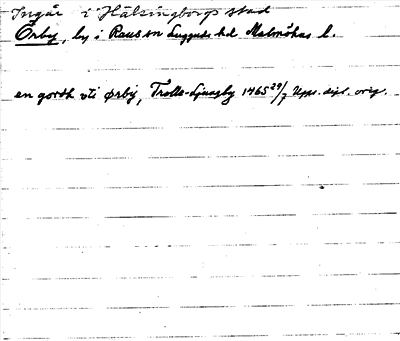 Ingår i Hälsingborgs stad
Örby, by i Raus sn Luggude hd Malmöhus l.
en gordh vti Ørby, Trolle-Ljungby 1465 29/7 Upps. dipl. orig.